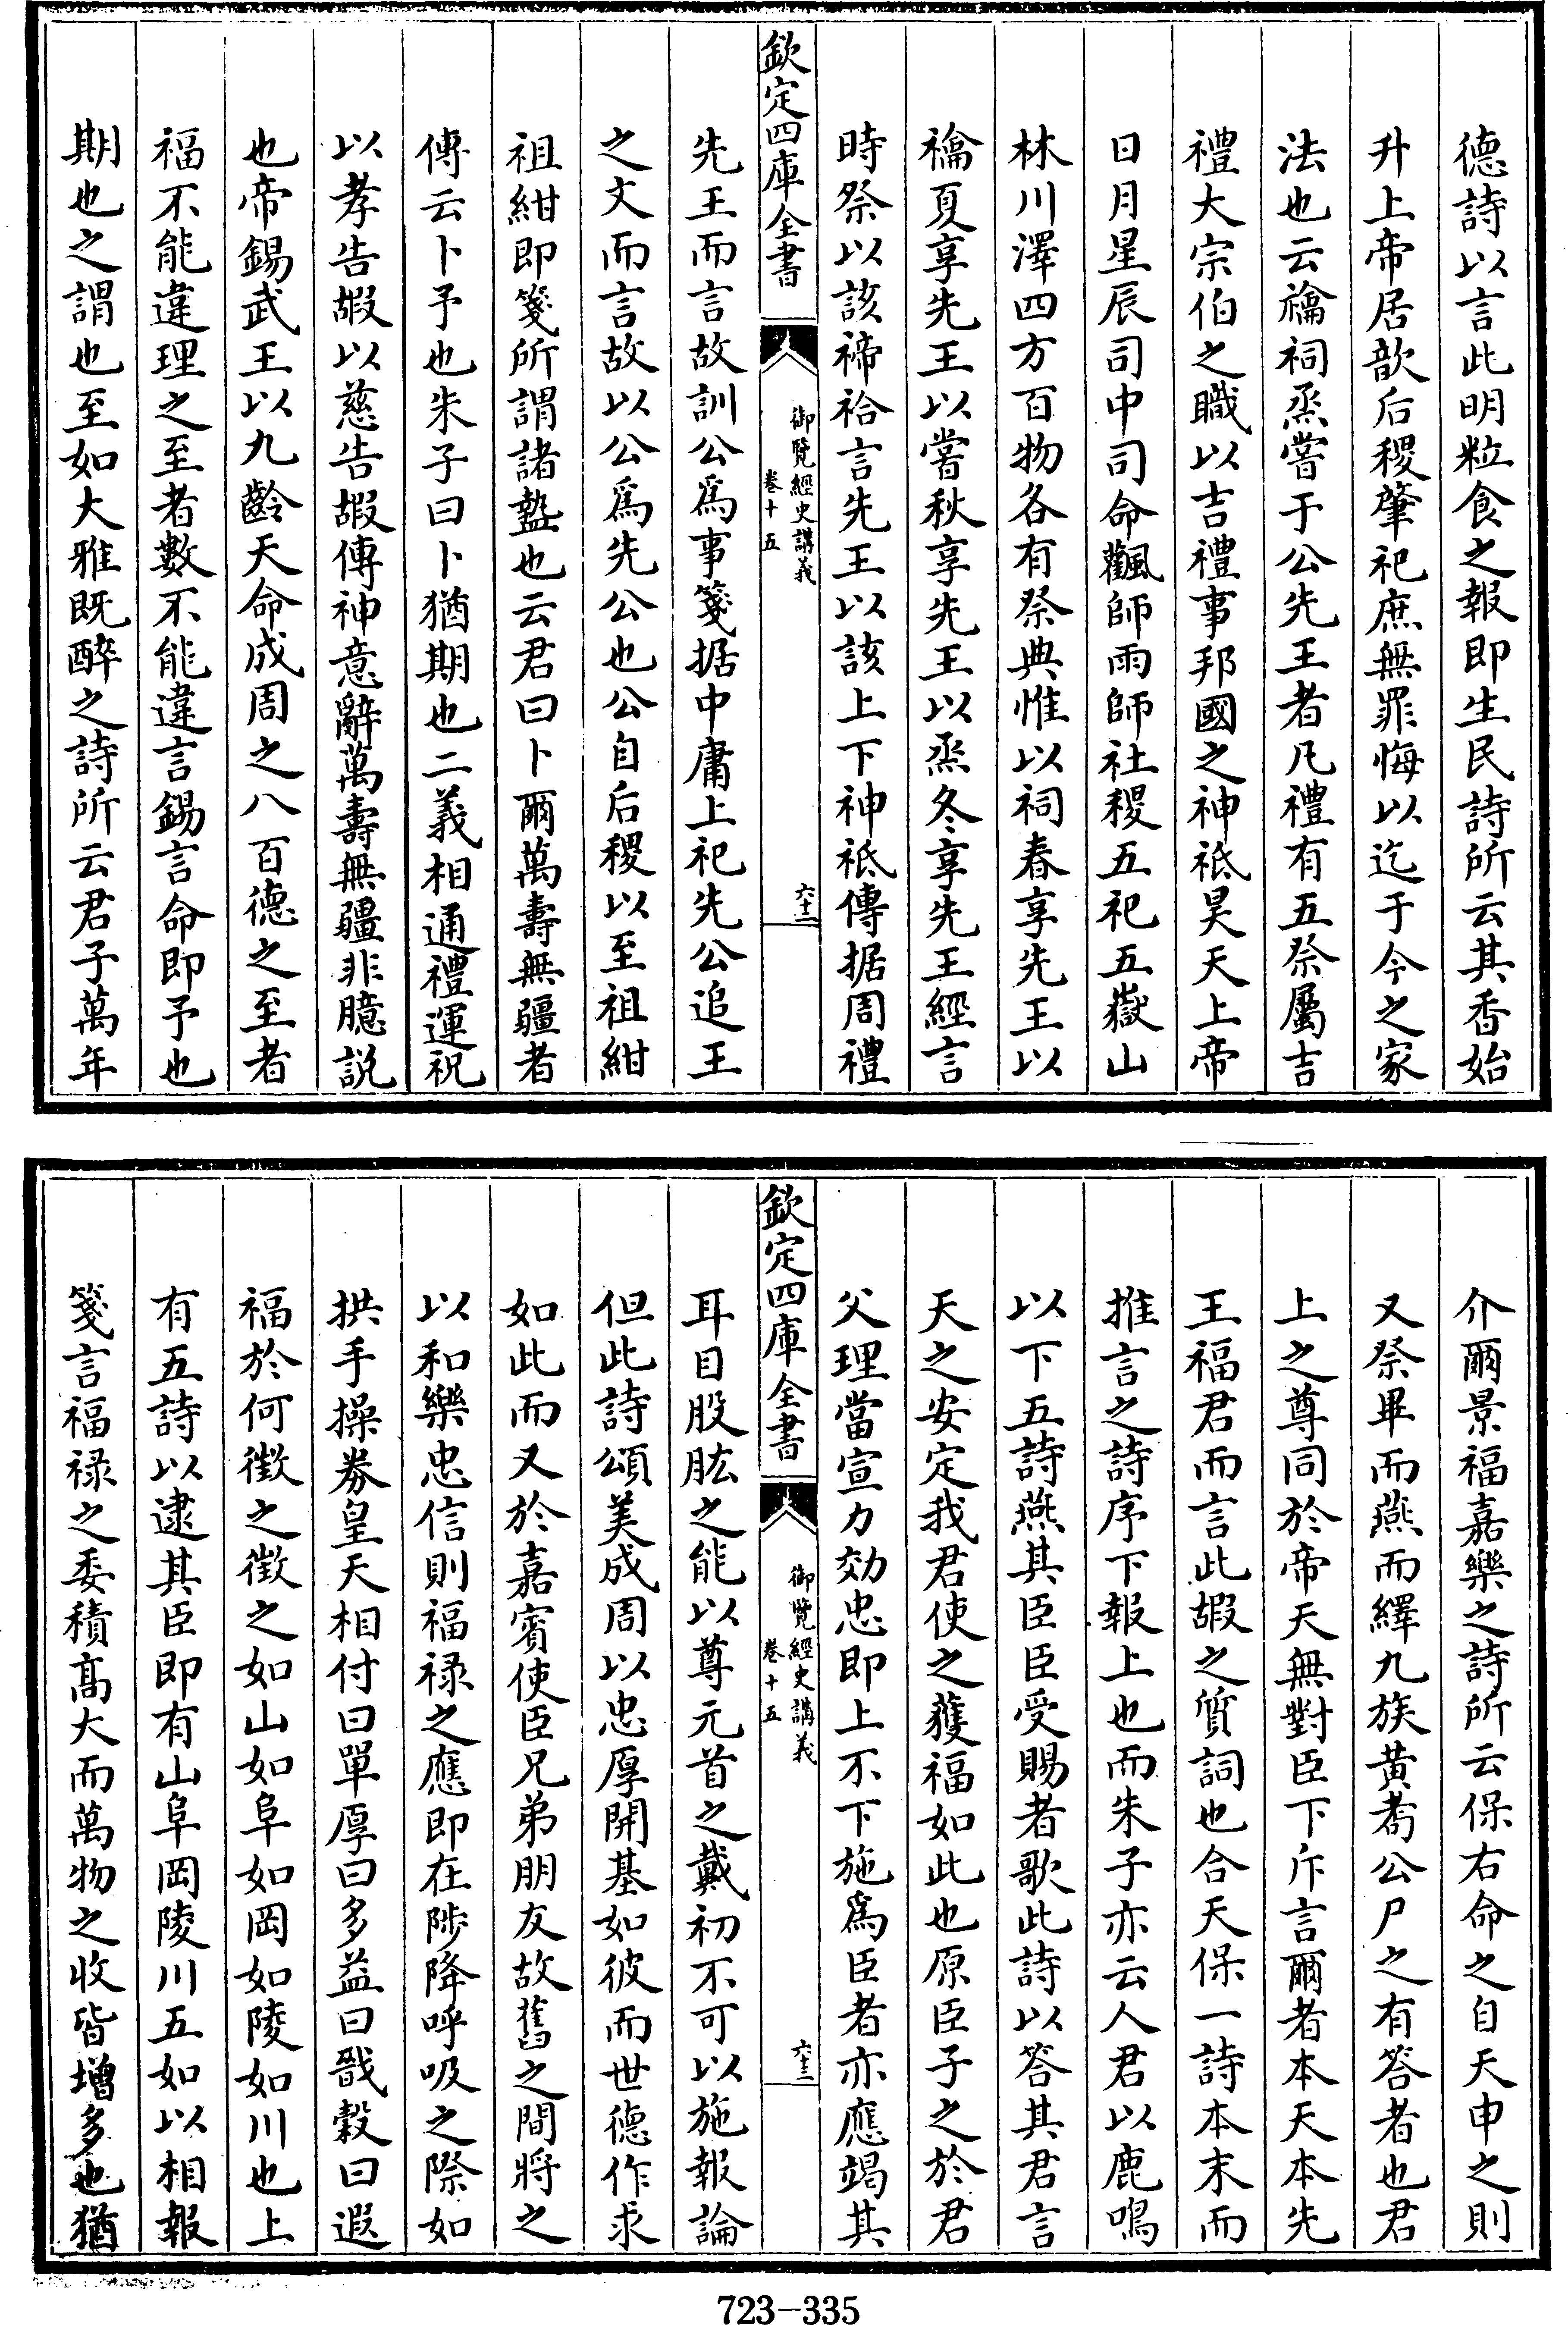 德詩以言此明粒食之報即生民詩所云其香始
升上帝居歆后稷肇祀庶無罪悔以迄于今之家
法也云禴祠烝嘗于公先王者凡禮有五祭屬吉
禮大宗伯之職以吉禮事邦國之神祗昊天上帝
日月星辰司中司命飌師雨師社稷五祀五嶽山
林川澤四方百物各有祭典惟以祠春享先王以
禴夏享先王以嘗秋享先王以烝冬享先王經言
時祭以該禘祫言先王以該上下神祗傳据周禮
欽定四庫全書
御覽經史講義
卷十五
六十二
先王而言故訓公爲事箋据中庸上祀先公追王
之文而言故以公爲先公也公自后稷以至祖紺
祖紺即箋所謂諸盩也云君曰卜爾萬壽無疆者
傳云卜予也朱子曰卜猶期也二義相通禮運祝
以孝告嘏以慈告嘏傳神意辭萬壽無疆非臆説
也帝錫武王以九齡天命成周之八百德之至者
福不能違理之至者數不能違言錫言命即予也
期也之謂也至如大雅既醉之詩所云君子萬年
介爾景福嘉樂之詩所云保右命之自天申之則
又祭畢而燕而繹九族黄耈公尸之有答者也君
上之尊同於帝天無對臣下斥言爾者本天本先
王福君而言此嘏之質詞也合天保一詩本末而
推言之詩序下報上也而朱子亦云人君以鹿鳴
以下五詩燕其臣臣受賜者歌此詩以答其君言
天之安定我君使之獲福如此也原臣子之於君
父理當宣力効忠即上不下施爲臣者亦應竭其
欽定四庫全書
御覽經史講義
卷十五
六十三
耳目股肱之能以尊元首之戴初不可以施報論
但此詩頌美成周以忠厚開基如彼而世德作求
如此而又於嘉賓使臣兄弟朋友故舊之間將之
以和樂忠信則福禄之應即在陟降呼吸之際如
拱手操券皇天相付曰單厚曰多益曰戩穀曰遐
福於何徵之徵之如山如阜如岡如陵如川也上
有五詩以逮其臣即有山阜岡陵川五如以相報
箋言福禄之委積髙大而萬物之收皆增多也猶
723-335